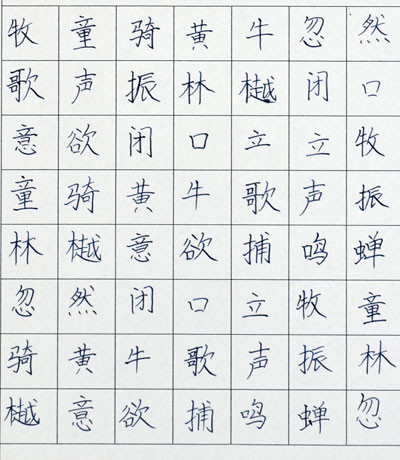 牧童骑黄牛忽然
歌声振林樾闭口
意欲闭口立立牧
童骑黄牛歌声振
林樾意欲捕鸣蝉
忽然闭口立牧童
骑黄牛歌声振林
樾意欲捕鸣蝉忽